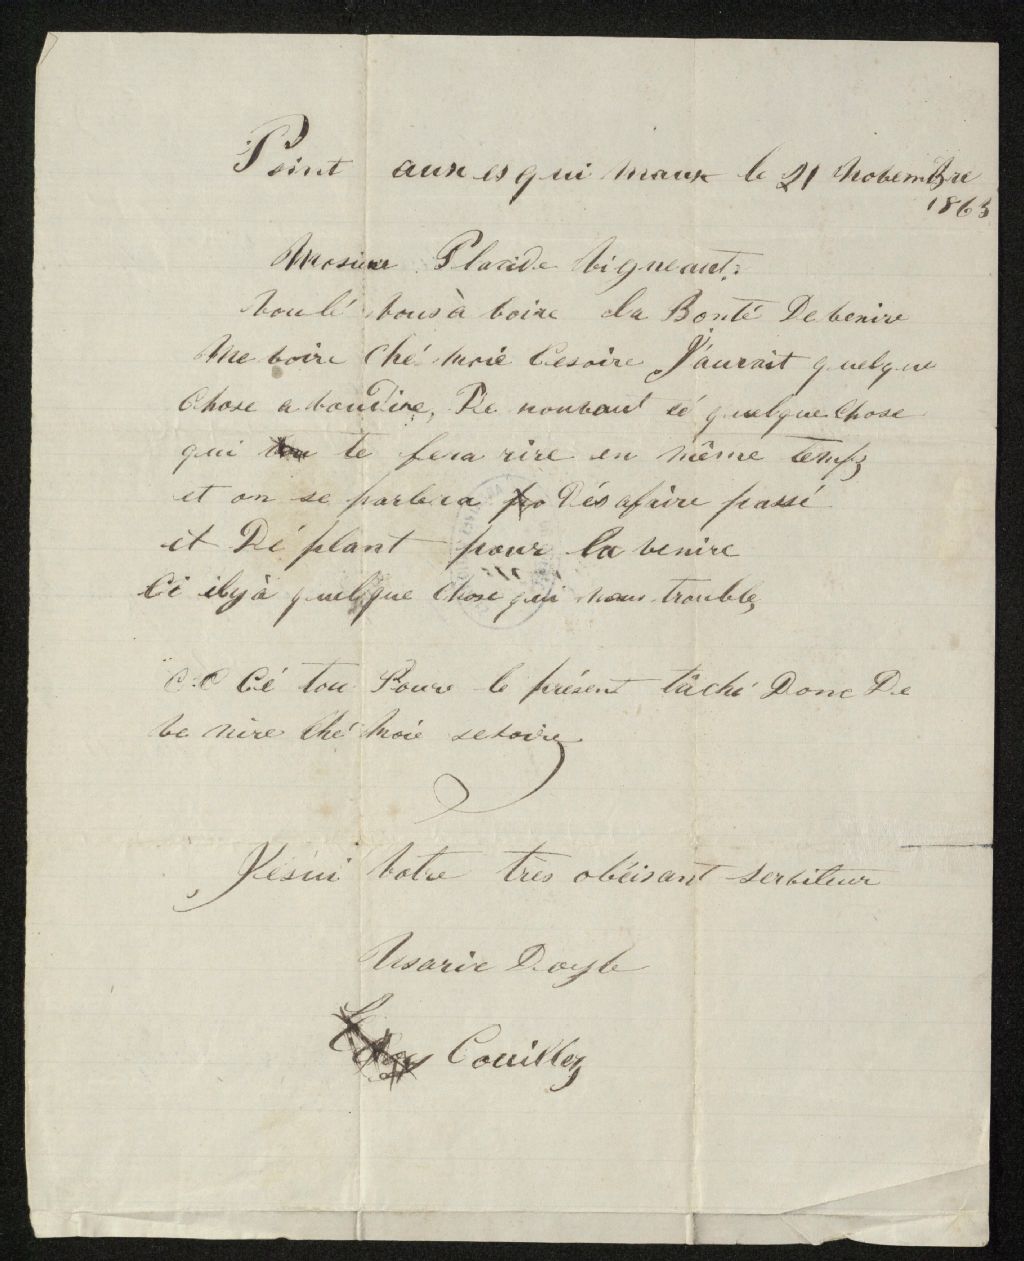 Point aux es qui maux le 21 novembre
1863
Mosieur Placide Vigneant.
voulé vous à voire la Bonté De venire
me voire Ché moié Cesoire J'aurait quelque
chose a vou Dire, De nouvaut eé quelque chose
qui te fera rire en même temps
et on se parlera Dés afaire passé
et Dé plant pour la venire
Ci ilyà quelque chose qui nous trouble,
Cé tou Pour le présent tâché Donc De
ve nire Ché moié sesoire
Je sui votre très obéisant serviteur
Marie Doyle
Couillez